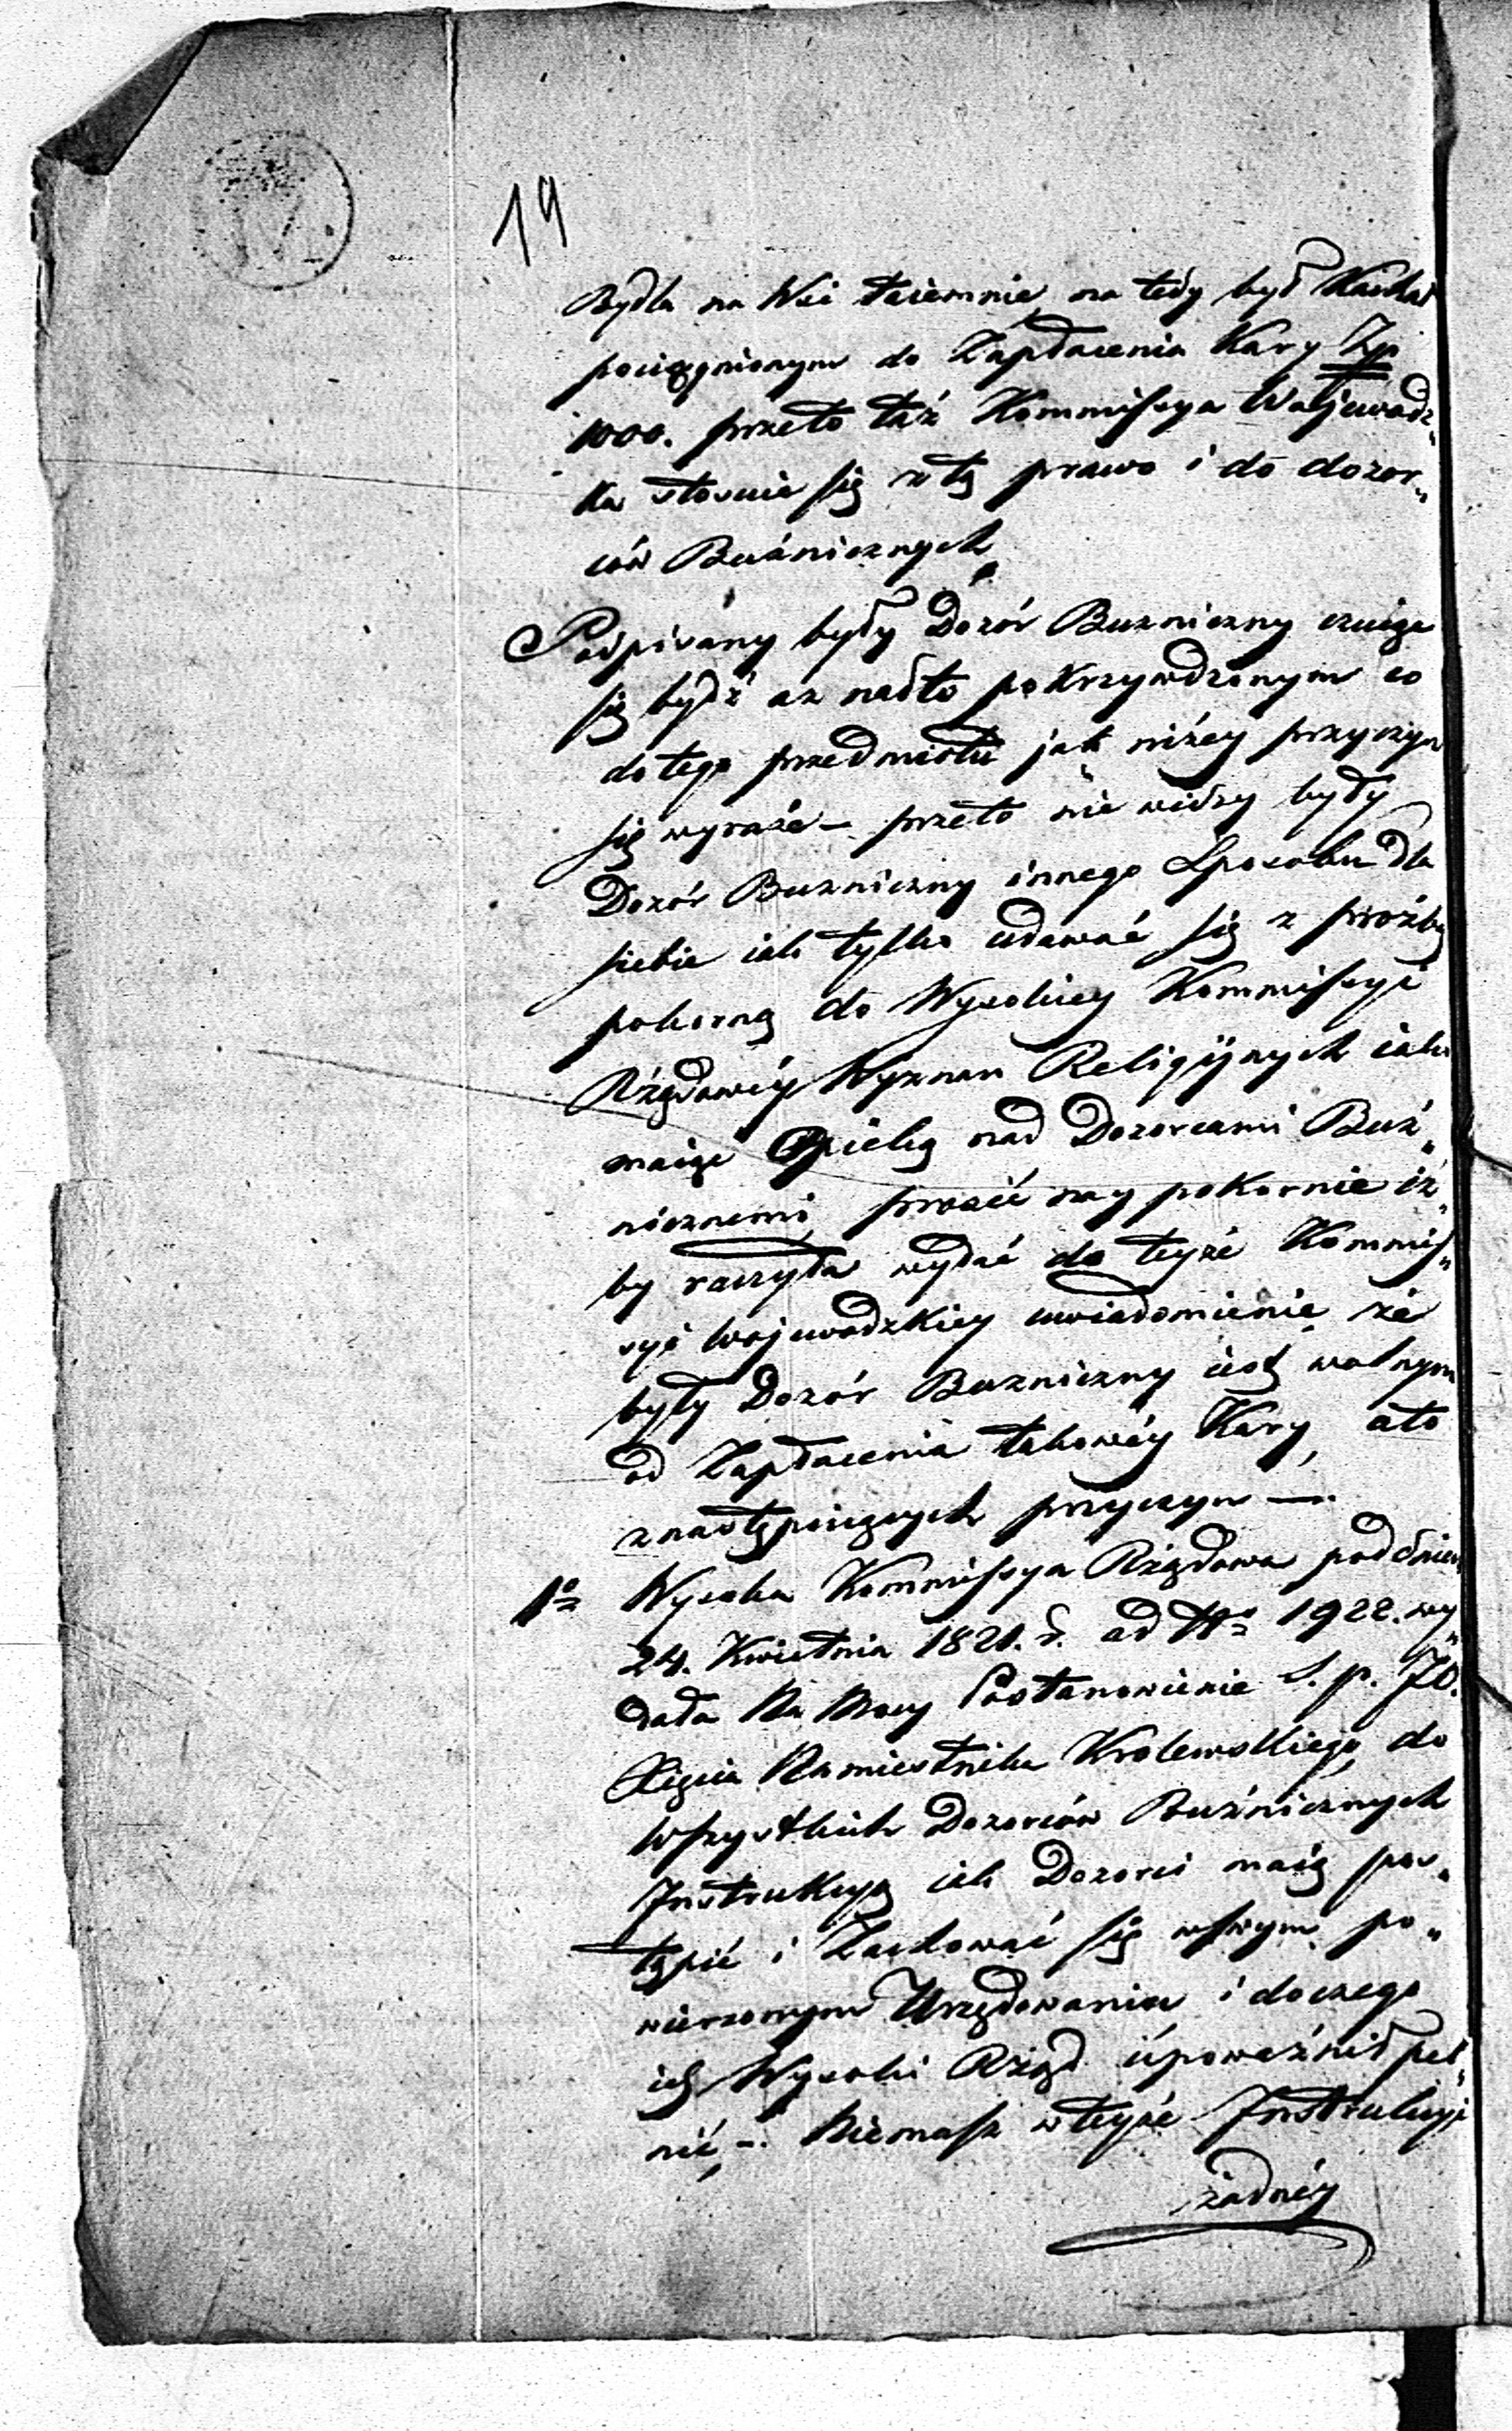 19
Bydła na Wsi taiemnie, na tedy był Kachał
pociągnionym do Zapłacenia Kary Zp
1000. przeto taż Kommissya Wojewodz„
Ka stosuie się z tą prawo i do dozor„
ców Bużnicznych
Podpisany były Dozór Buzniczny czuiąc
się bydź az nadto pokrzywdzonym co
do tego przedmiotu jak niżey przyczyn
się wyraża – przeto nie widzy były
Dozór Buzniczny innego Sposobu dla
siebie iak tylko udawać się z prożbą
pokorną do Wysokiey Kommissyi
Rżądowéy Wyznan Religijnych iako
maiąc Opieką nad Dozorcami Buż„
nicznemi, prosić nay pokornie iż„
by raczyła wydać do teyże Kommis„
syi Wojewodzkiey uwiadomienie że
były Dozór Buzniczny iest wolnym
od Zapłacenia takowéy Kary, ato
z następuiących przyczyn —.
1o Wysoka Kommissya Rżądowa pod dniem
24. Kwietnia 1821. r. ad No 1922. wy„
dała Na Mocy Postanowienie S. p. JO.
Xięcia Namiestnika Krolewskiego, do
Wszystkich Dozorców Bużnicznych
Instrukcyą iak Dozorci maią pos„
tąpić i Zachować się w swym po„
wierzonym Urzędowaniu i do czego
ich Wysoki Rżąd upoważnił peł„
nić –. Niemasz w teyże Instrukcyi
żadnéy